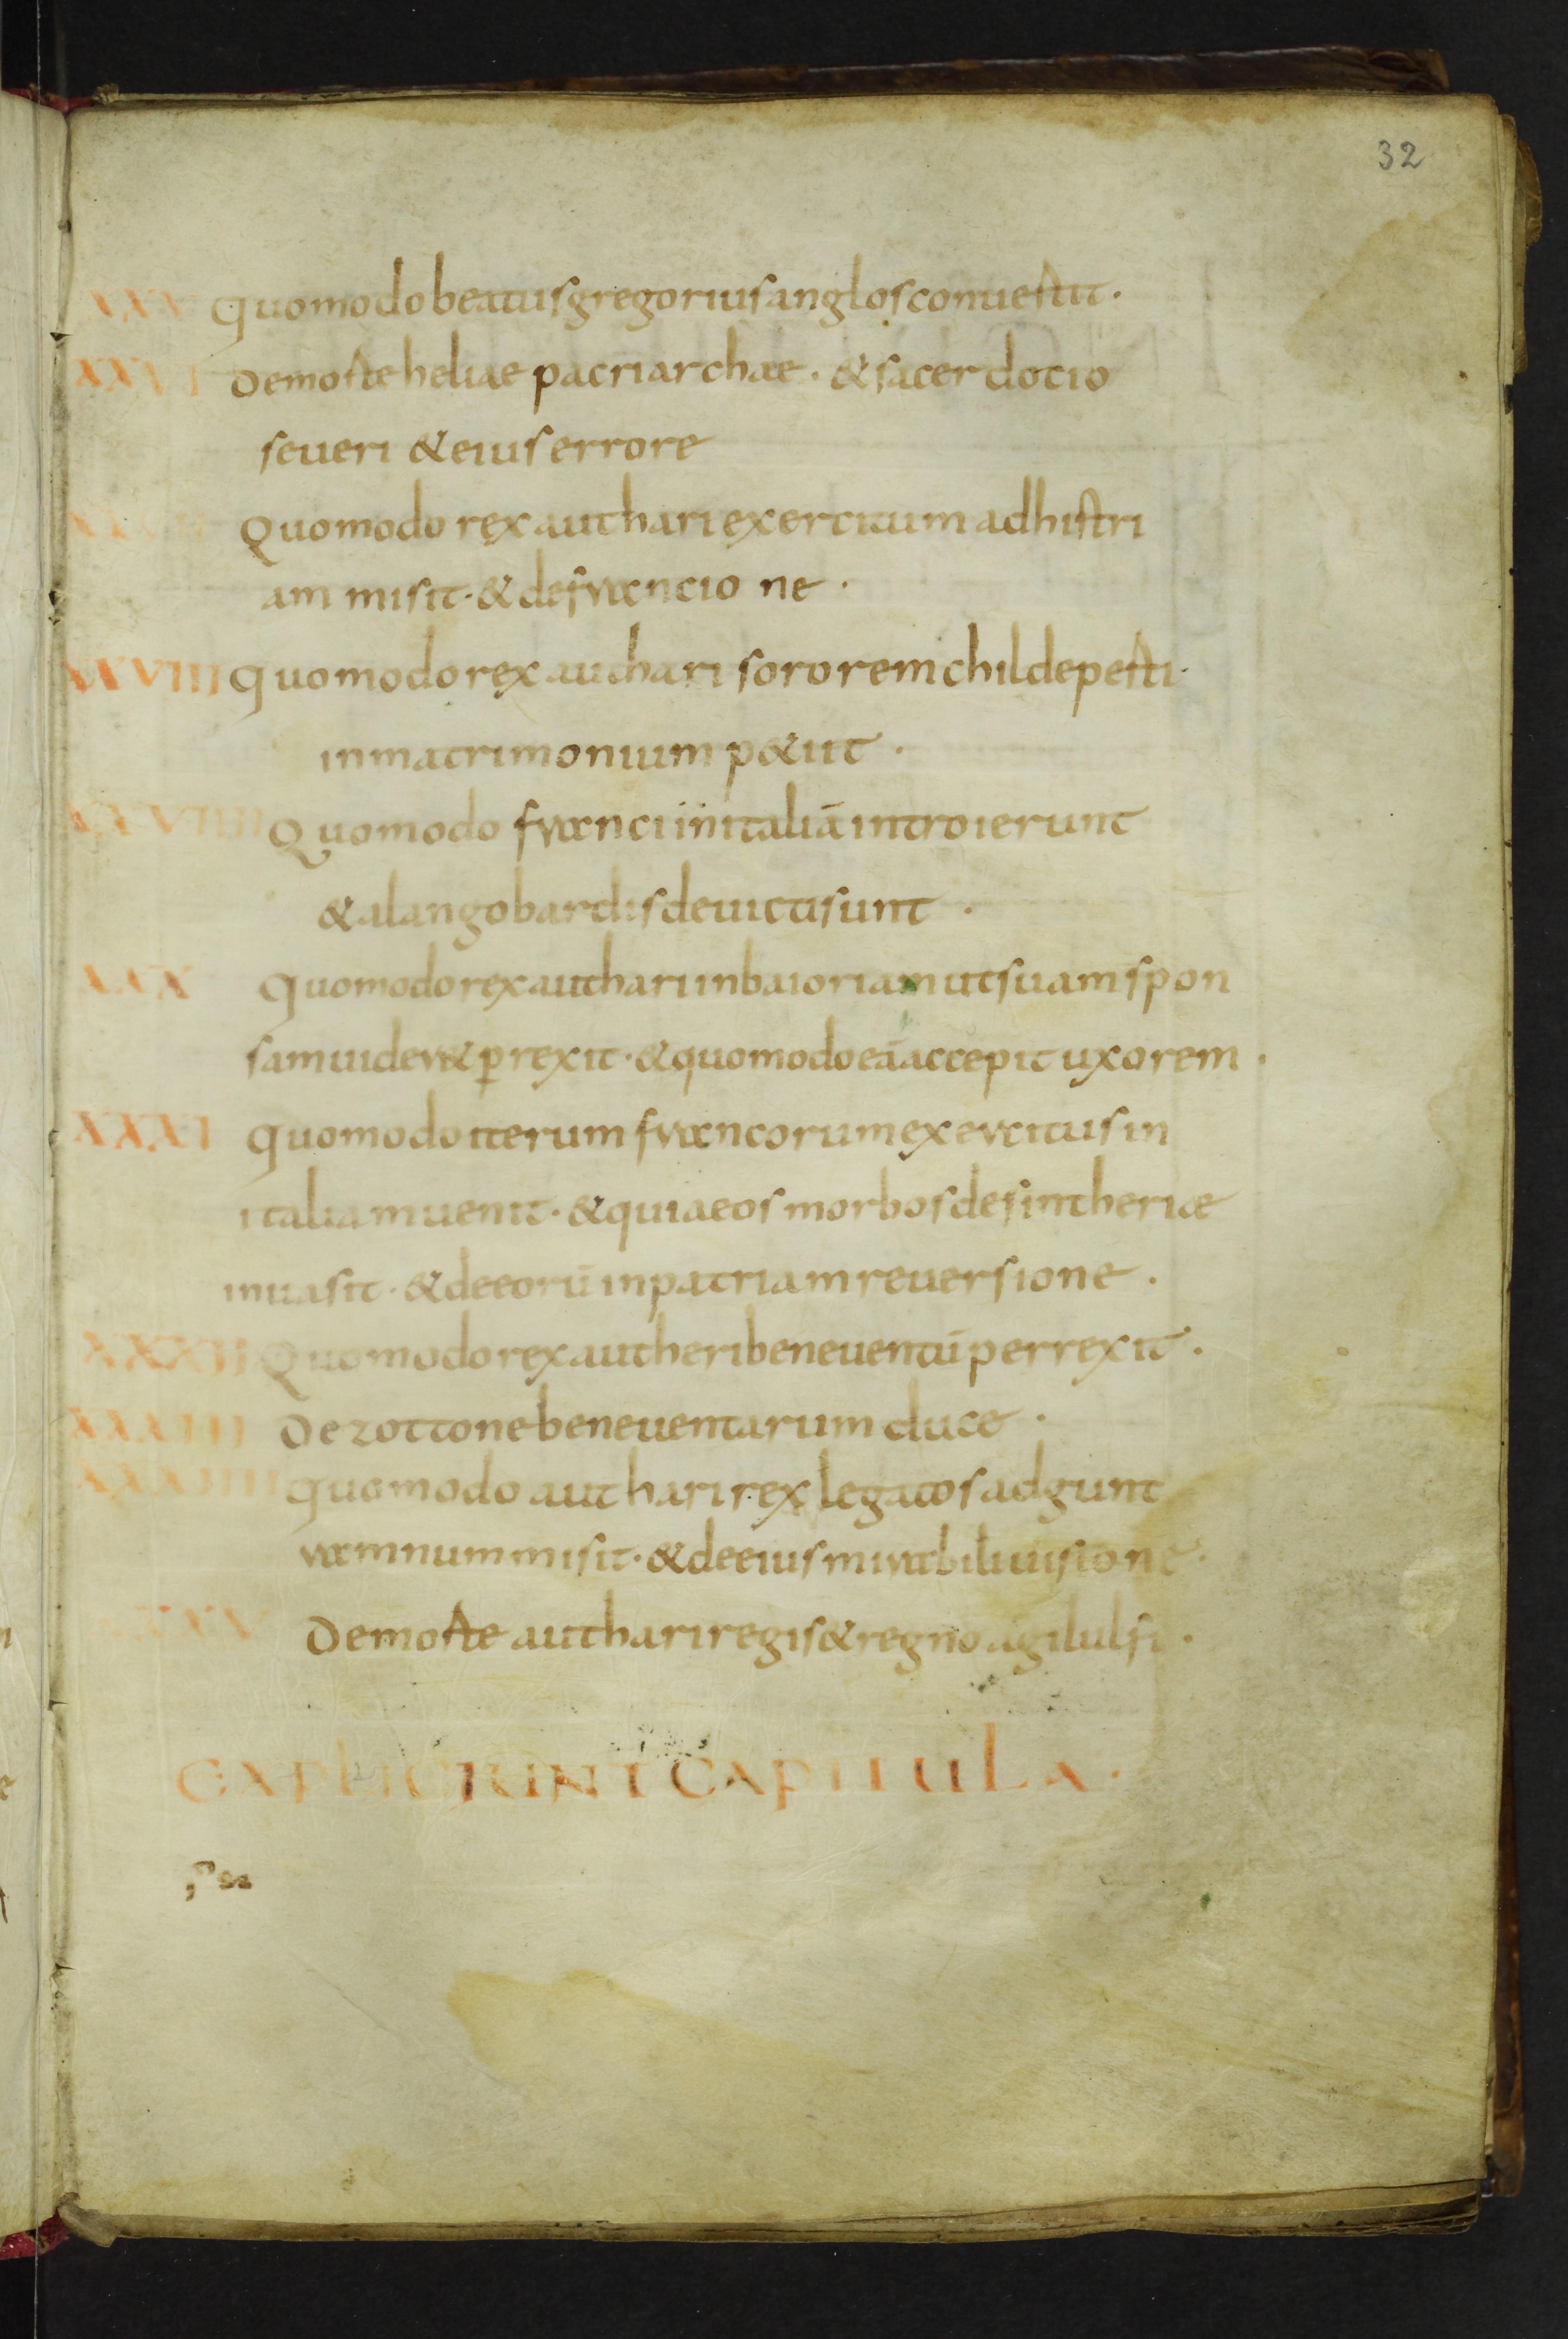 32
XXV Quomodo beatus gregorius anglos convertit ·
XXVI De morte heliae patriarchae · & sacerdotio
severi & eius errore
Quomodo rex authari exercitum ad histri
am misit · & de francio ne ·
XXVIII Quomodo rex authari sororem childeperti ·
in matrimonium p&iit ·
XXVIIII Quomodo franci in italiā introierunt
& a langobardis devicti sunt ·
XXX Quomodo rex authari in baioriam ut suam spon
sam uider& p̄rexit · & quomodo eā accepit uxorem ·
XXXI Quomodo iterum francorum exercitus in
italiam uenit · & quia eos morbos desintheriae
inuasit · & de eorū in patriam reuersione ·
XXXII Quomodo rex autheri beneuentū perrexit ·
XXXIII De zottone beneuentarum duce ·
XXXIIII Quomodo authari rex legatos ad gunt
ramnum misit · & de eius mirabili uisione ·
XXXV De morte authari regis & regno agilulfi ·
EXPLICIUNT CAPITULA ·